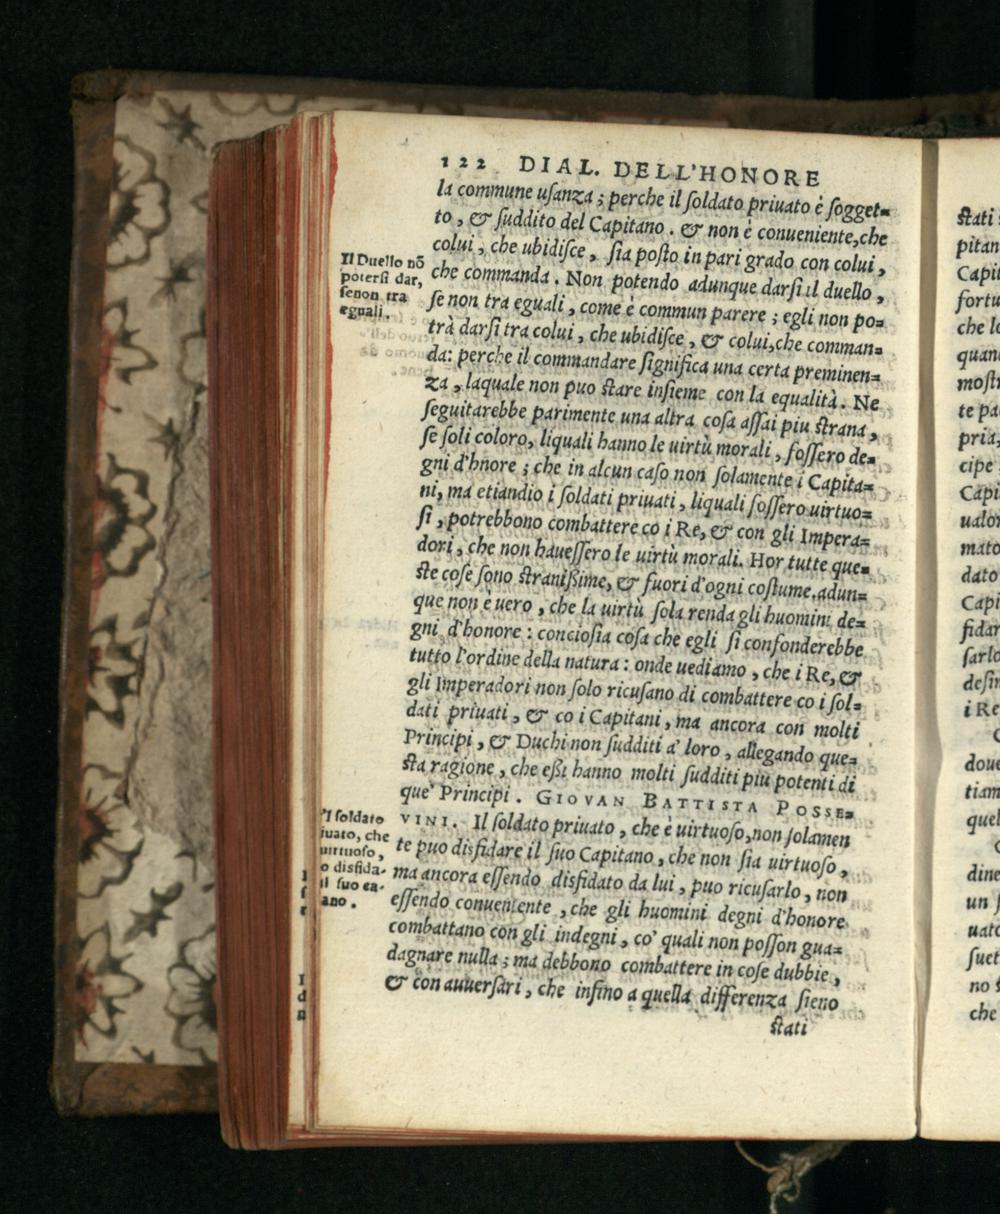 122 DIAL. DELL'HONORE
la commune uſanza ; perche il ſoldato priuato è ſogget=
to , & ſuddito del Capitano . & non è conueniente,che
colui , che ubidiſce , ſia poſto in pari grado con colui ,
che commanda . Non potendo adunque darſi il duello ,
ſe non tra eguali , come è commun parere ; egli non po=
trà darſi tra colui , che ubidiſce , & colui,che comman=
da: perche il commandare ſignifica una certa preminen=
za , laquale non puo ſtare inſieme con la equalità . Ne
ſeguitarebbe parimente una altra coſa aſſai piu ſtrana ,
ſe ſoli coloro, liquali hanno le uirtù morali , foſſero de=
gni d'hnore ; che in alcun caſo non ſolamente i Capita=
ni, ma etiandio i ſoldati priuati , liquali foſſero uirtuo=
ſi , potrebbono combattere co i Re, & con gli Impera=
dori , che non haueſſero le uirtù morali. Hor tutte que=
ſte coſe ſono ſtranißime, & fuori d'ogni coſtume.adun=
que non è uero , che la uirtù ſola renda gli huomini de=
gni d'honore : concioſia coſa che egli ſi confonderebbe
tutto l'ordine della natura : onde uediamo , che i Re, &
gli Imperadori non ſolo ricuſano di combattere co i ſol=
dati priuati , & co i Capitani , ma ancora con molti
Principi , & Duchi non ſudditi a' loro , allegando que=
ſta ragione , che eßi hanno molti ſudditi piu potenti di
que' Principi . GIOVAN BATTISTA POSSE=
VINI. Il ſoldato priuato , che è uirtuoſo,non ſolamen
te puo disfidare il ſuo Capitano , che non ſia uirtuoſo ,
ma ancora eſſendo disfidato da lui , puo ricuſarlo , non
eſſendo conueniente , che gli huomini degni d'honore
combattano con gli indegni , co' quali non poſſon gua=
dagnare nulla ; ma debbono combattere in coſe dubbie ,
& con auuerſari , che inſino a quella differenza ſieno
ſtati
Il Duello nõ
poterſi dar,
ſenon tra
eguali.
'l ſoldato
iuato, che
uirtuoſo,
o disfida-
il ſuo ca-
ano .
ſtati
pitan
Capit
fortu
che lo
quan
moſtr
te pa
pria,
cipe
Capi
ualor
mato
dato
Capi
fidar
ſarlo
deſin
i Re
doue
tiam
quel
dine
un ſ
uato
ſuet
no
che